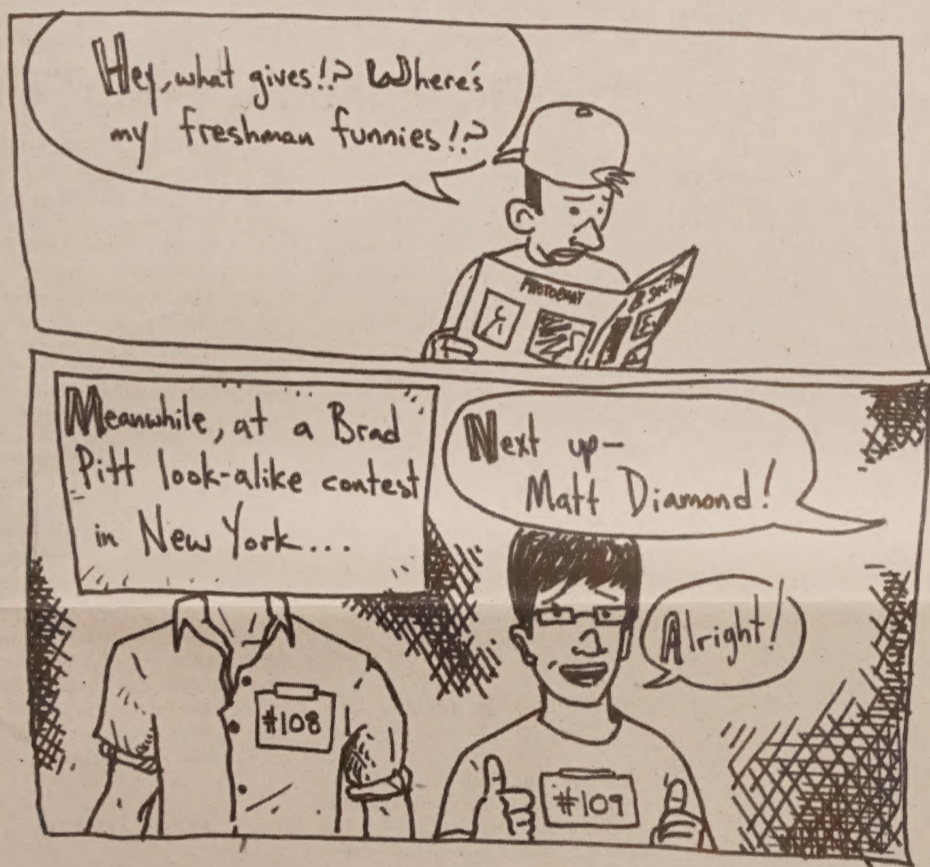 Hey, what gives!? Where's
my freshman funnies!?
PHOTO
B Section
Meanwhile, at a Brad
Pitt look-alike contest
in New York...
Next up-
Matt Diamond!
Alright!
#108
#109